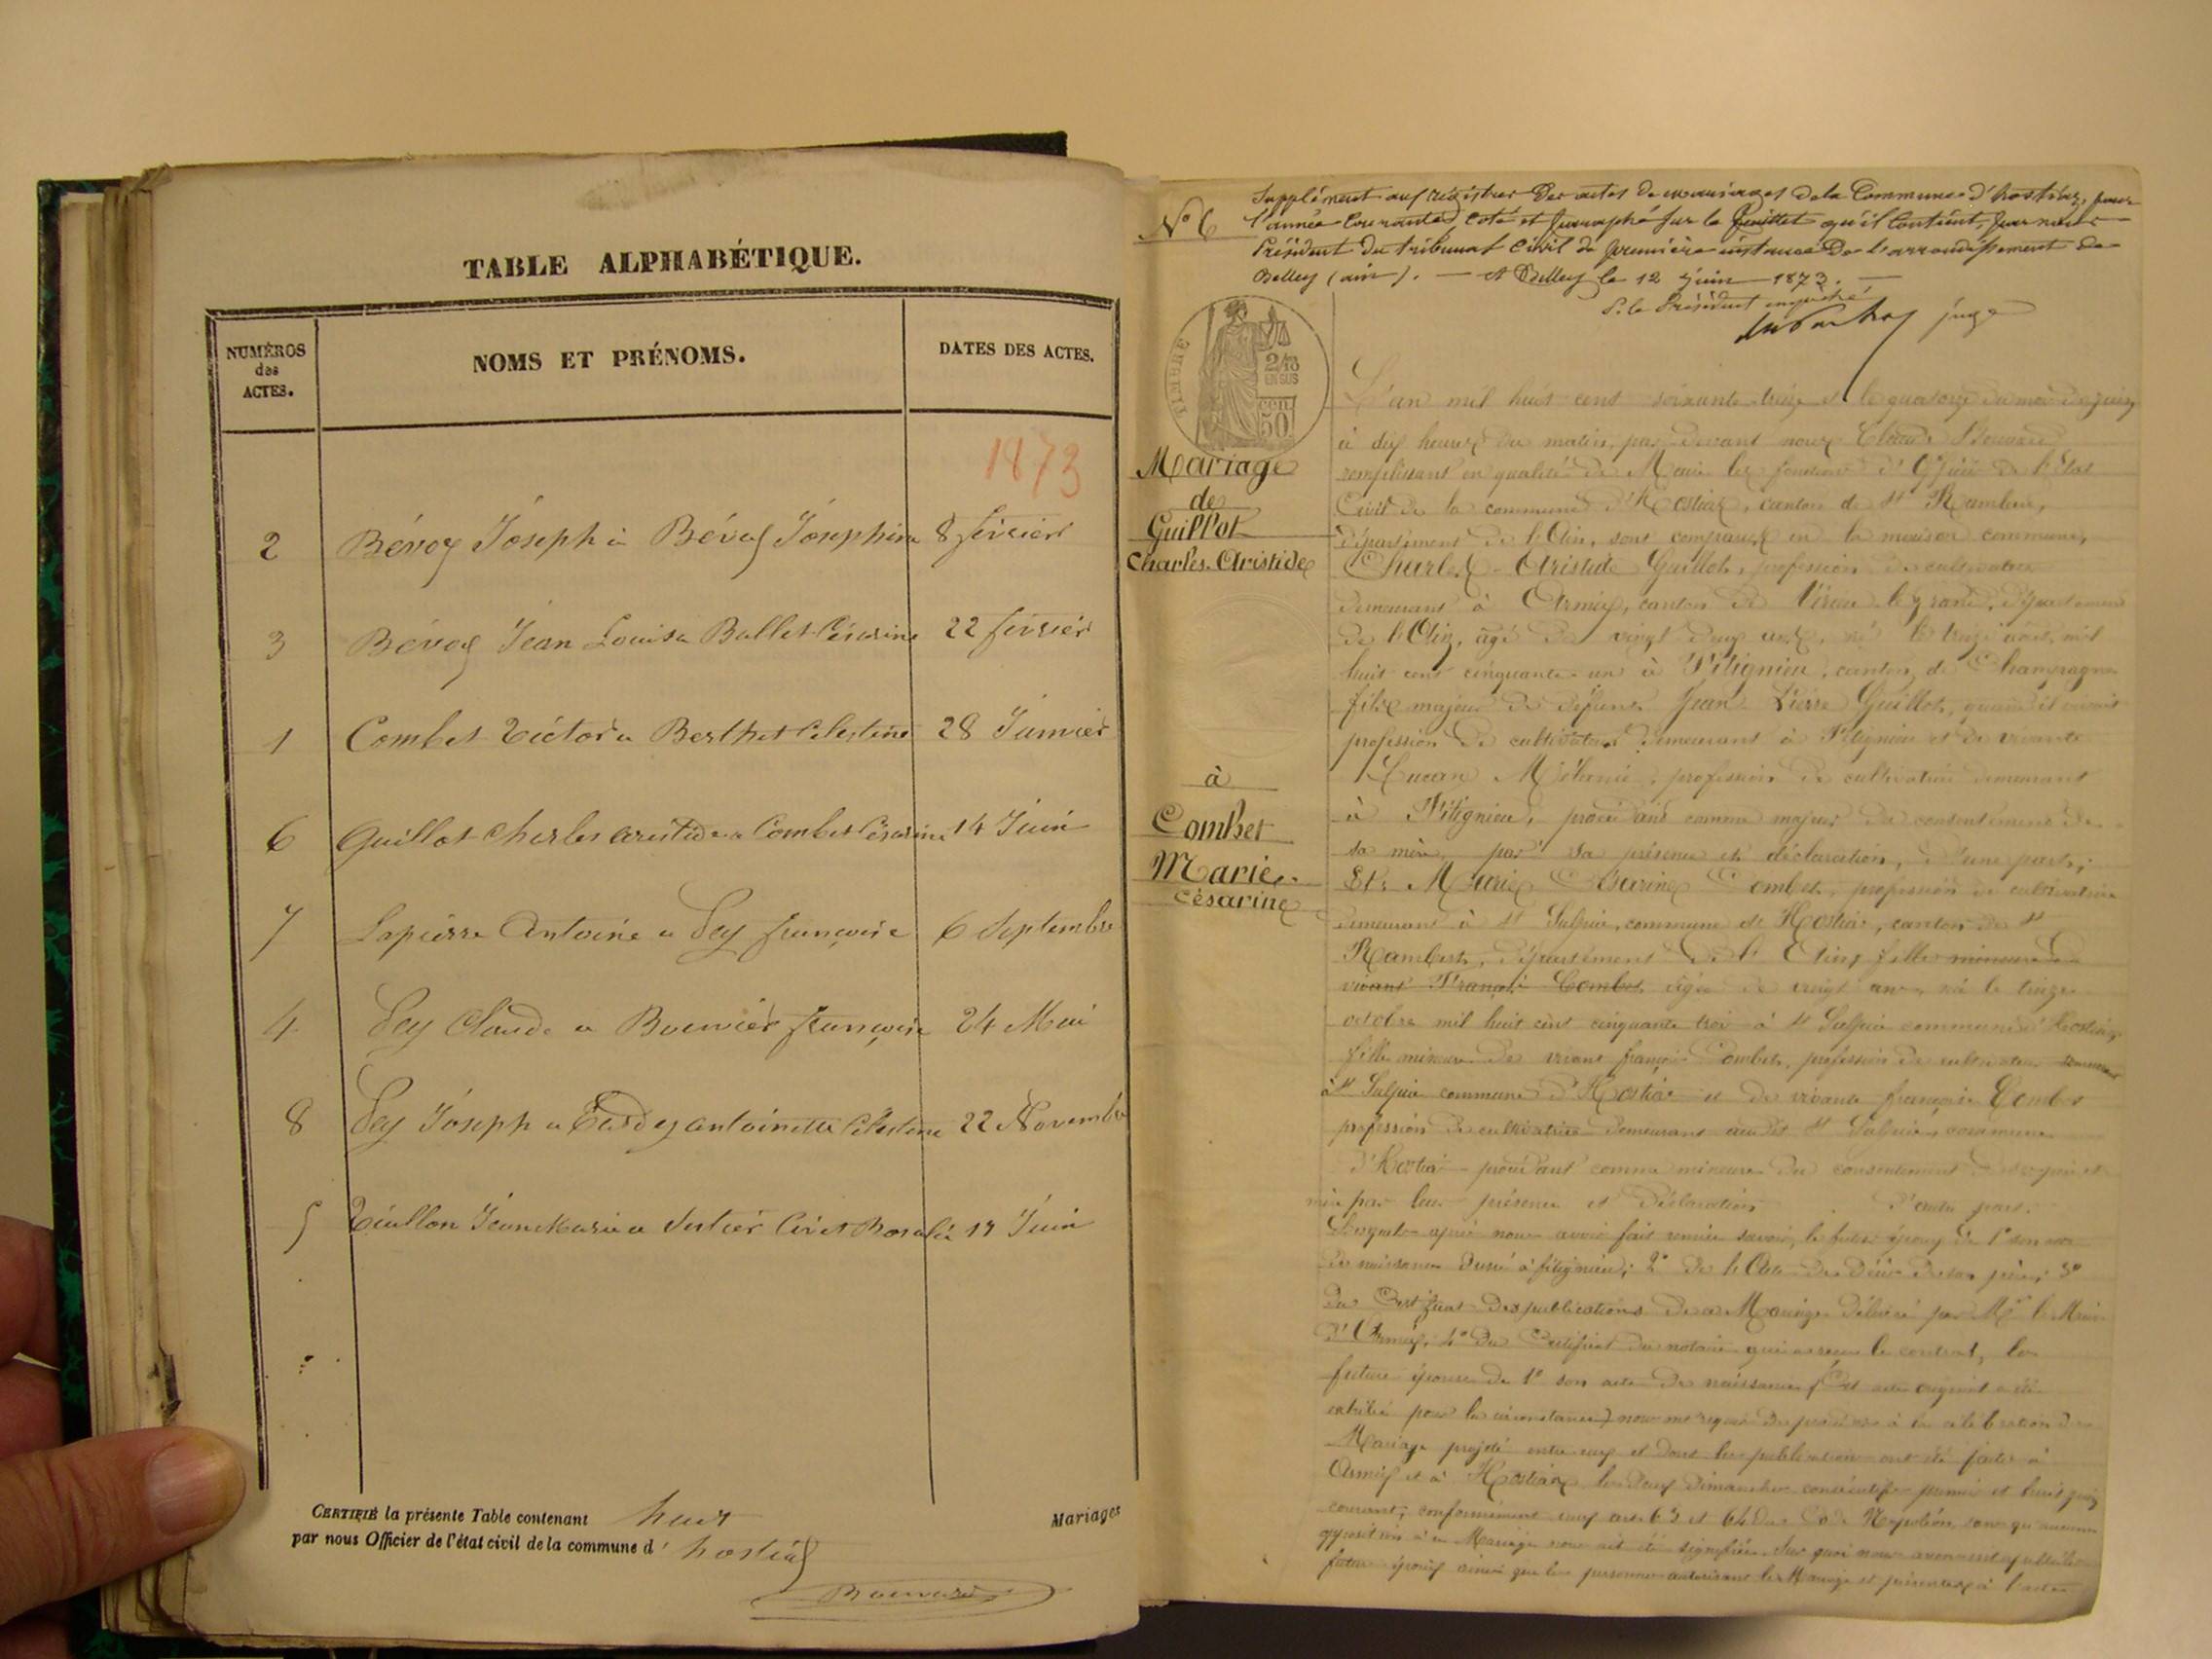 TABLE ALPHABÉTIQUE.
NUMÉROS
des
ACTES.
NOMS ET PRÉNOMS.
DATES DES ACTES.
1873
2 Bévoz Joseph à Bévoz Joséphine 8 février
3 Bévoz Jean Louis à Ballet Césarine 22 février
1 Combet Victor à Berthet Célestine 28 Janvier
6 Guillot Charles Aristide à Combet Césarine 14 Juin
7 Lapierre Antoine à Sey françoise 6 Septembre
4 Sey Claude à françoise 24 Mai
8 Sey Joseph à antoinette Célestine 22 Novembre
5 Jean Marie à Rosalie Juin
CERTIFIÉ la présente Table contenant huit
Mariages
par nous Officier de l'état civil de la commune d' hostiaz
N° 6
Supplément aux régistres des actes de mariages de la Commune d'hostiaz, pour
l'année Courante, coté et paraphé sur le feuillet qu'il Contient, par nous
Président du tribunal Civil de première instance De l'arrondissement de
Belley (ain). — A Belley le 12 Juin 1873. —
P. le Président empêché
juge
TIMBRE
2/10
EN SUS
50
Mariage
de
Guillot
Charles. Aristide
à
Combet
Marie.
Césarine
L'an mil huit cent soixante-treize et le quatorze du mois de juin
à dix heures du matin, par devant nous Claude
remplissant en qualité de Maire les fonctions d'Officier de l'État
Civil de la commune d'Hostiaz, canton de St Rambert,
département de l'Ain, sont comparus en la maison commune,
Charles-Aristide Guillot, profession de cultivateur
demeurant à Armix, canton de Virieu-le-grand, département
de l'Ain, âgé de vingt deux ans, né le treize août mil
huit cent cinquante-un à Fitignieu, canton de Champagne
fils majeur de défunt Jean Pierre Guillot, quand il vivait
profession de cultivateur demeurant à Fitignieu et de vivante
Mélanie, profession de cultivatrice demeurant
à Fitignieu, procédant comme majeur du consentement de
sa mère, par sa présence et déclaration, d'une part;
Et Marie Césarine Combet, profession de cultivatrice
demeurant à St Sulpice, commune de Hostiaz, canton de St
Rambert, département de l'Ain, fille mineure de
vivant François Combet, âgée de vingt ans, né le treize
octobre mil huit cent cinquante trois à St Sulpice commune d'Hostiaz,
fille mineure de vivant françois Combet, profession de cultivateur demeurant
à St Sulpice commune d'Hostiaz et de vivante françoise Combet
profession de cultivatrice demeurant audit St Sulpice, commune
d'Hostiaz procédant comme mineure du consentement de ses père et
mère par leur présence et déclaration d'autre part.
Lesquels après nous avoir fait remise savoir, le futur époux de 1° son acte
de naissance à fitignieu; 2° de l'Acte de Décès de son père; 3°
du Certificat des publications de ce Mariage délivré par Mr le Maire
d'Armix; 4° du Certificat du notaire qui a reçu le contrat, la
future épouse de 1° son acte de naissance (Cet acte original a été
pour la circonstance) nous ont requis de procéder à la célébration du
Mariage projeté entre eux et dont les publications ont été faites à
Armix et à Hostiaz les deux dimanches consécutifs premier et huit juin
courant; conformément aux arts 63 et 64 du Code Napoléon, sans qu'aucune
opposition à ce Mariage nous ait été signifiée. Sur quoi nous avons
futurs époux ainsi que les personnes autorisant le Mariage et présentes à l'acte